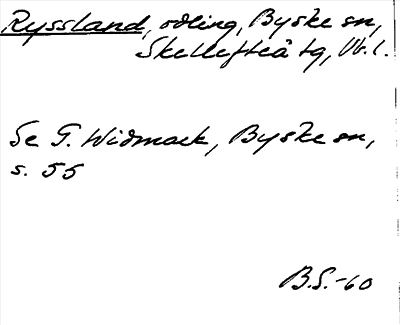 Ryssland, odling, Byske sn,
Skellefteå tg, Vb.l.
Se G. Widmark, Byske sn,
s. 55
B.S.-60